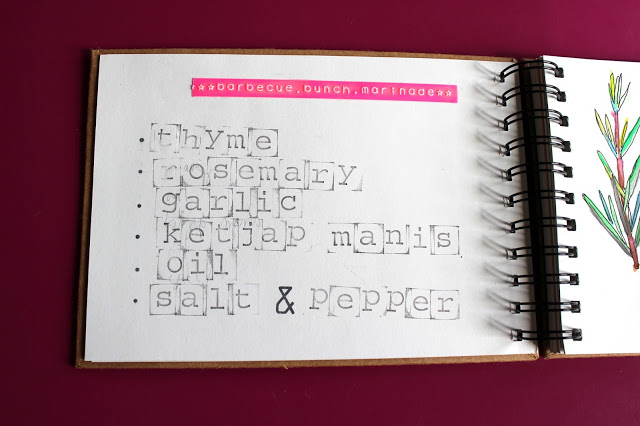 ☆☆barbecue.bunch.marinade☆☆
• thyme
• rosemary
• garlic
• ketjap manis
• oil
• salt & pepper